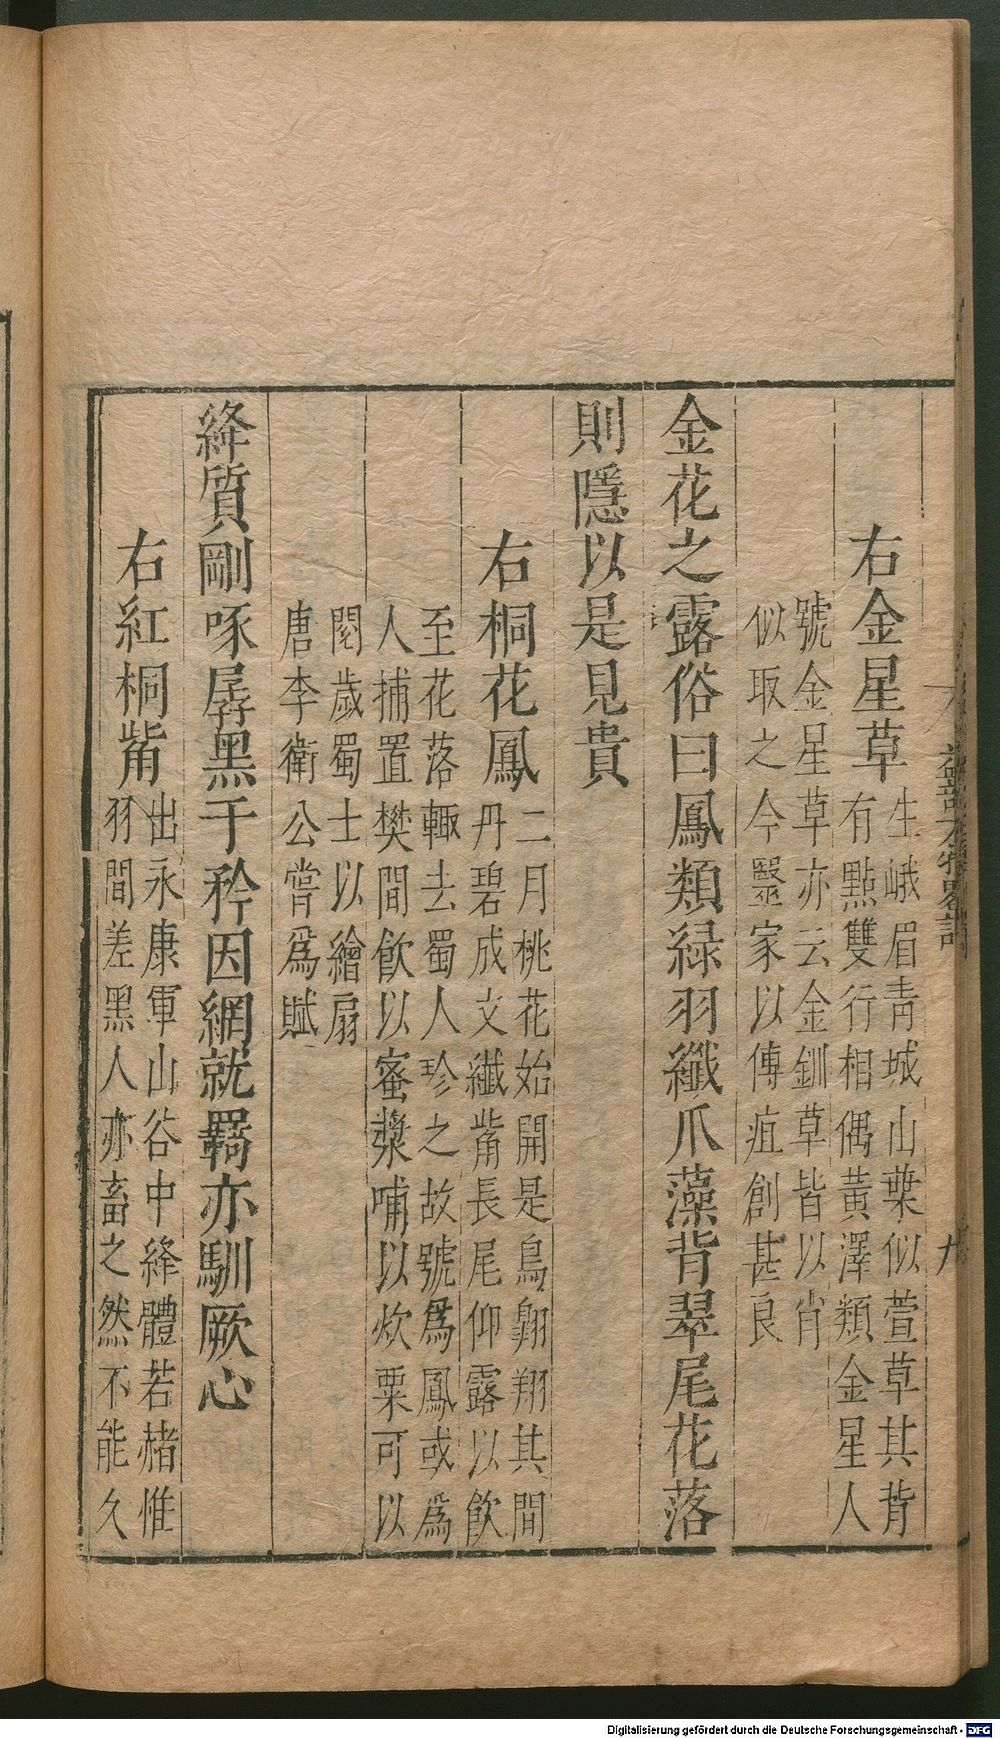 右金星草
生峨眉青城山葉似萱草其背
有點雙行相偶黃澤類金星人
號金星草亦云金釧草皆以肖
似取之今毉家以傅疽創甚良
金花之露俗曰鳳類緑羽纖爪藻背翠尾花落
則隱以是見貴
右桐花鳳
二月桃花始開是鳥翺翔其間
丹碧成文纖觜長尾仰露以飲
至花落輙去蜀人珍之故號爲鳳或爲
人捕置樊間飲以蜜漿哺以炊粟可以
閱歲蜀士以繪扇
唐李衛公嘗爲賦
絳質剛啄孱黑于矜因網就羇亦馴厥心
右紅桐觜
出永康軍山谷中絳體若赭惟
羽間差黑人亦畜之然不能久
益部方物畧記
九
Digitalisierung gefördert durch die Deutsche Forschungsgemeinschaft - DFG